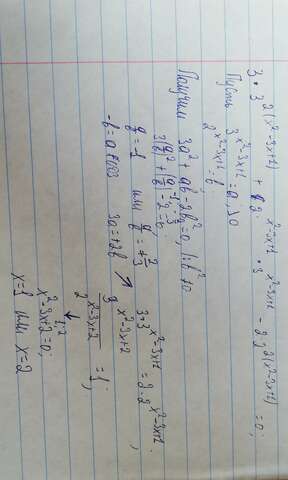 3·3^{2(x²-3x+2)} + 2^{x²-3x+2}·3^{x²-3x+2} - 2·2^{2(x²-3x+2)} = 0;
Пусть 3^{x²-3x+2} = a > 0
2^{x²-3x+2} = b
Получим 3a² + ab - 2b² = 0, |:b² ≠ 0
3(a/b)² + (a/b) - 2 = 0;
a/b = -1 или a/b = +2/3
-b = a 3a = +2b
3·3^{x²-3x+2} = 2·2^{x²-3x+2};
x²-3x+2 = 0;
x=1 или x=2